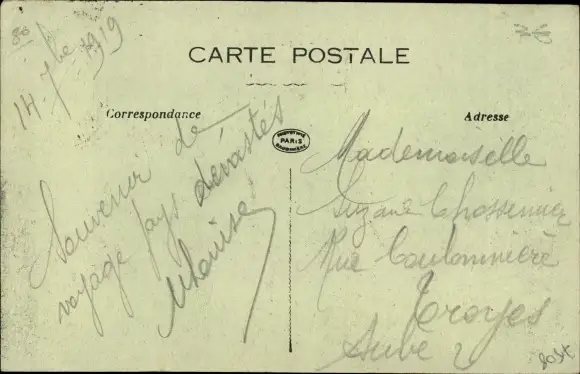 80
14 7bre 1919
CARTE POSTALE
Correspondance
Adresse
PARIS
Souvenir de
voyage pays dévastés
Mademoiselle
Suzane
Rue Coulommière
Troyes
Aube